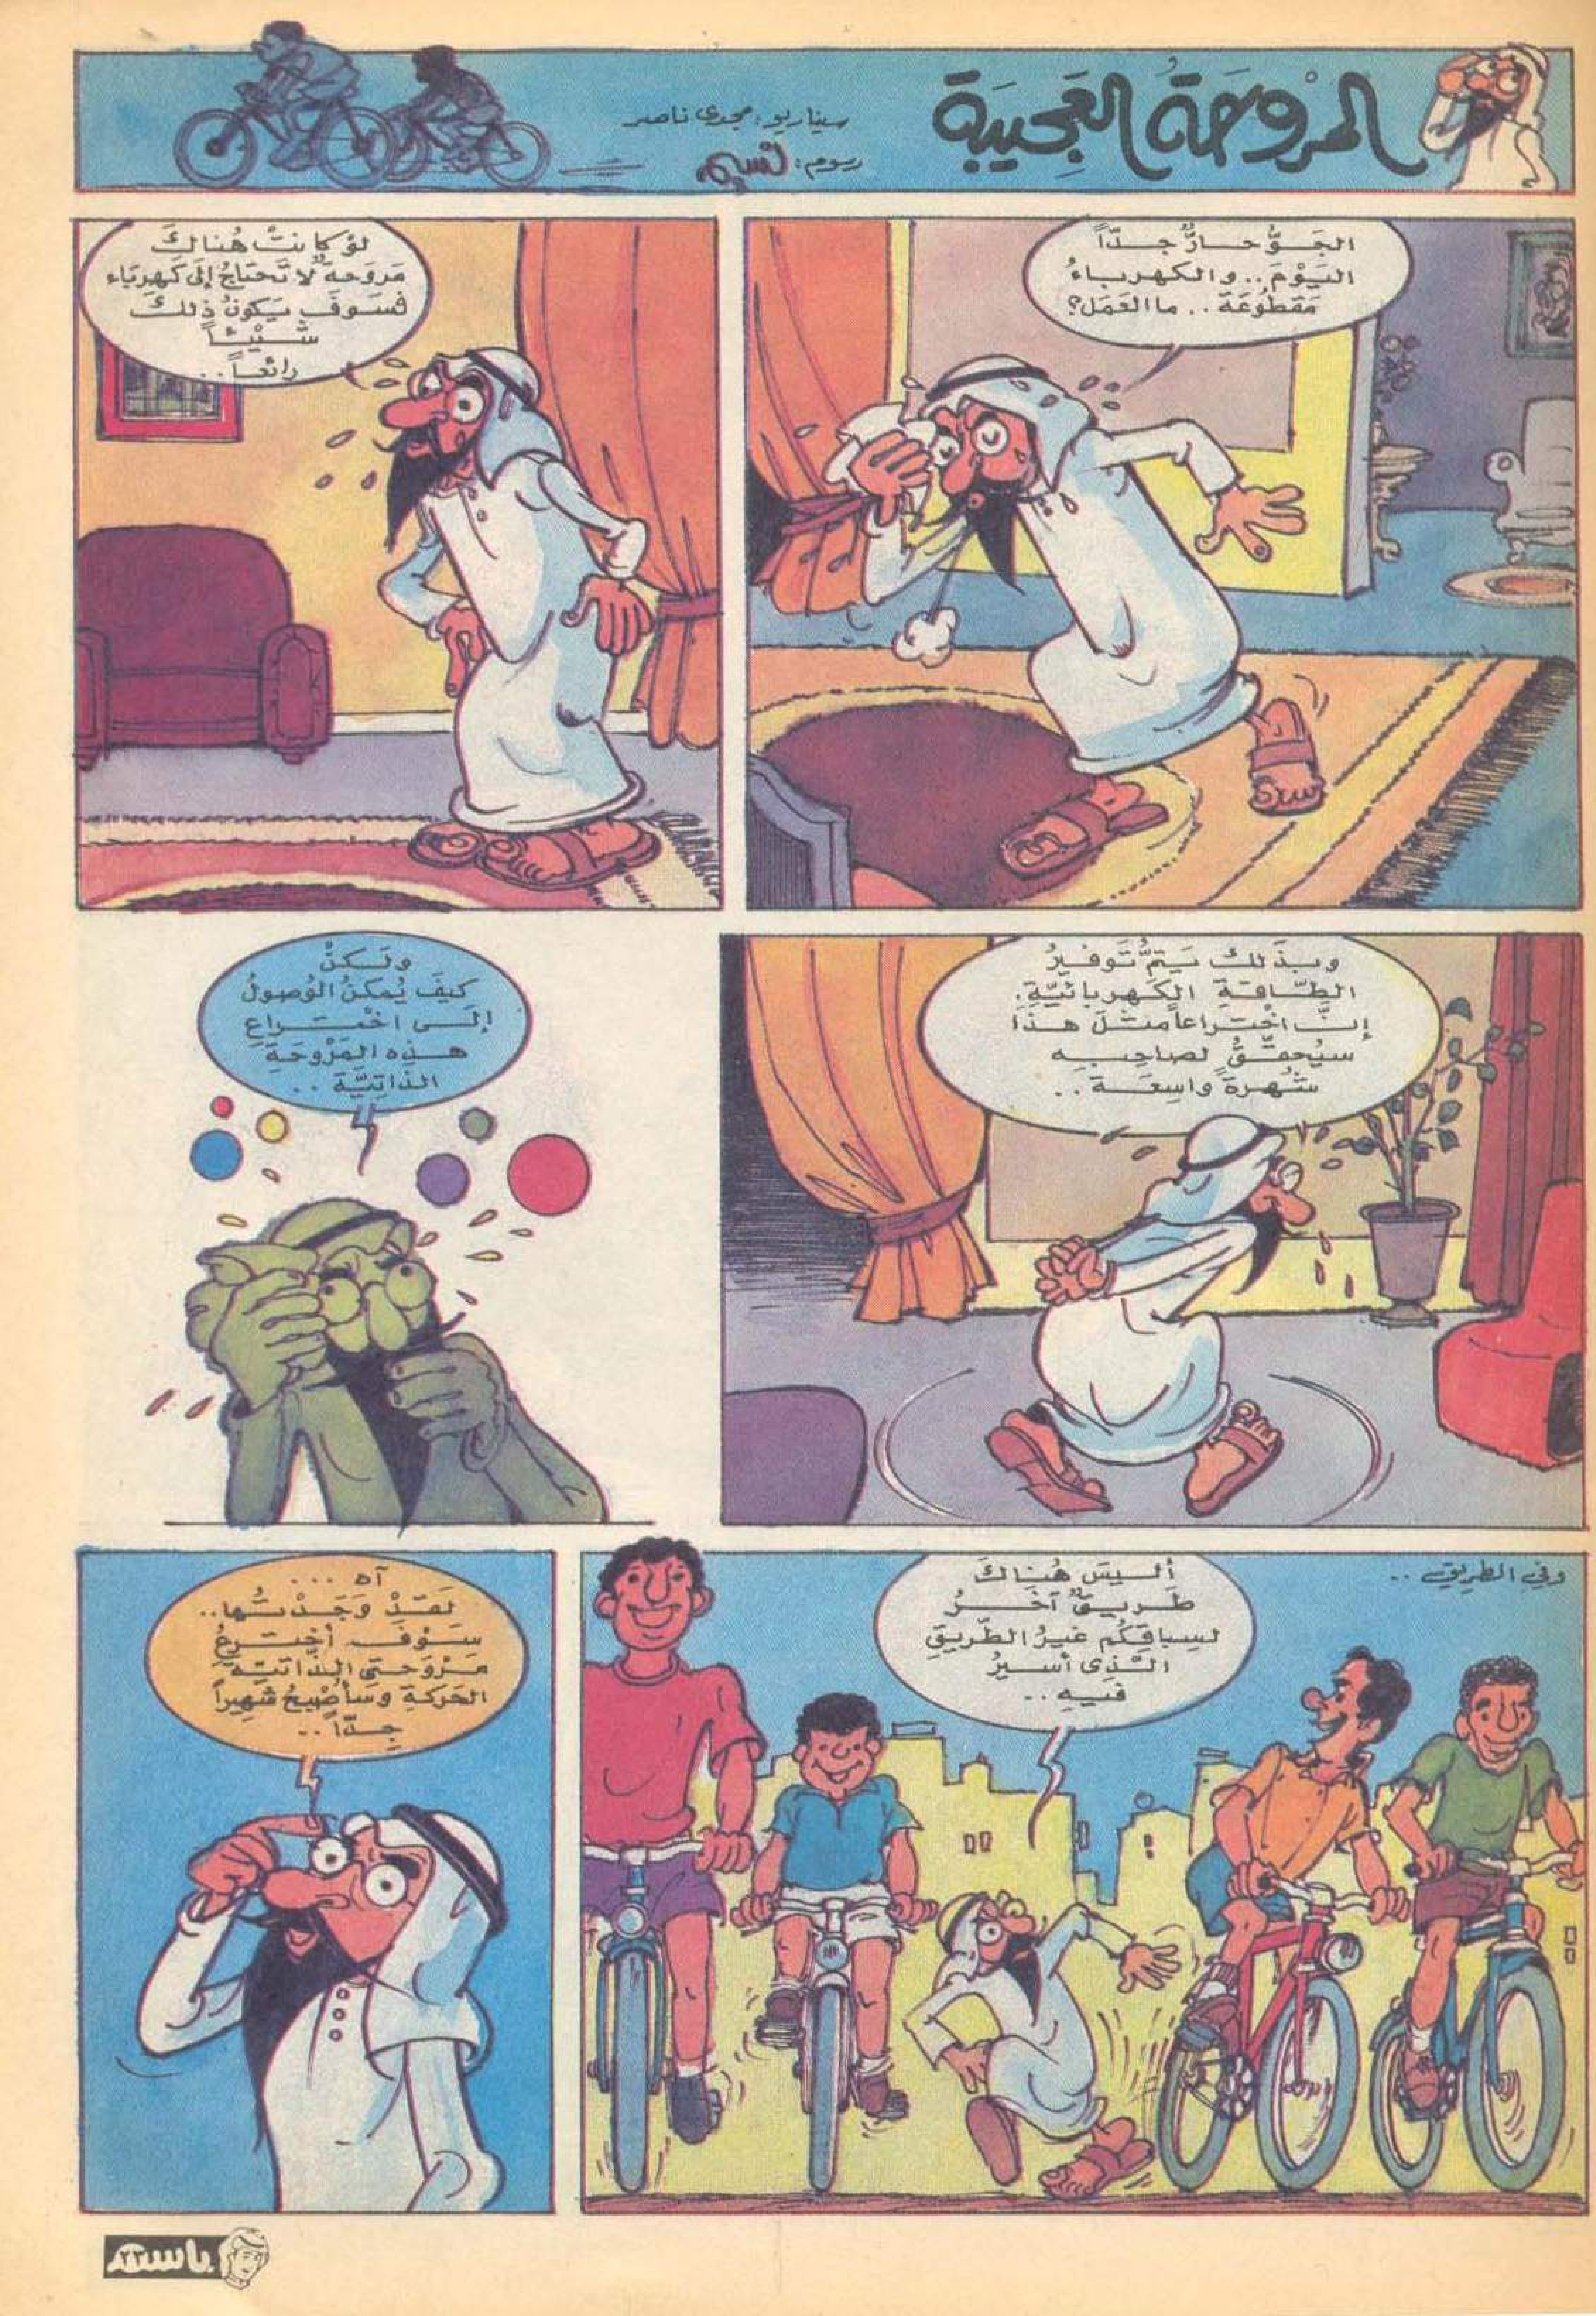 المروحة العجيبة
سيناريو: مجدي ناصر
رسوم: نسيم
الجَوُّ حارٌّ جدّاً
اليَوْمَ.. والكهرباءُ
مَقطُوعَة.. ما العَمَل؟
لَوْ كانتْ هُناكَ
مَروَحة لا تَحتاجُ إلى كَهرباء
فسَوفَ يَكونُ ذلكَ
شَيْئاً
رائعاً..
وبذَلكَ يَتمُّ تَوفيرُ
الطّاقةِ الكَهربائيّةِ.
إنَّ اخْتراعاً مثلَ هذا
سيُحقّقُ لصاحِبِهِ
شُهرةً واسِعَة..
ولَكنْ
كَيفَ يُمكنُ الوُصولُ
إلى اخْتراعِ
هذه المَرْوحَةِ
الذاتيَّة..
وفي الطريق..
أليسَ هُناكَ
طَريقٌ آخَرُ
لسِباقِكُم غيرُ الطّريقِ
الّذي أسيرُ
فيه..
آه ...
لقَدْ وَجَدْتُها..
سَوْفَ أخترعُ
مَرْوحتي الذّاتيّة
الحَركةِ وسأُصْبحُ شَهيراً
جِدّاً..
باسم